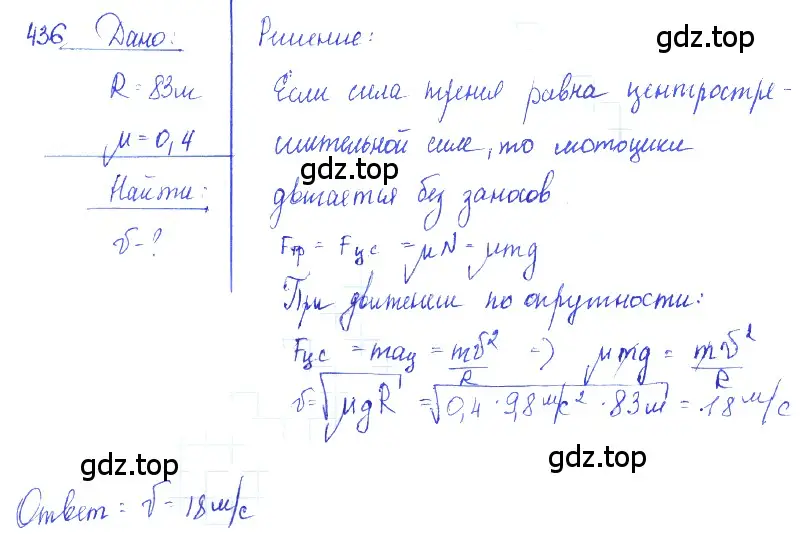 436 Дано:
R = 83м
μ = 0,4
Найти:
v - ?
Решение:
gdz.top
Если сила трения равна центростре-
мительной силе, то мотоцикл
gdz.top
двигается без заносов
gdz.top
Fтр = Fцс = μN = μmg
При движении по окружности:
Fцс = maц = mv²/R => μmg = mv²/R
v = √μgR = √0,4 · 9,8 м/с² · 83 м = 18 м/с
gdz.top
gdz.top
Ответ: v = 18 м/с